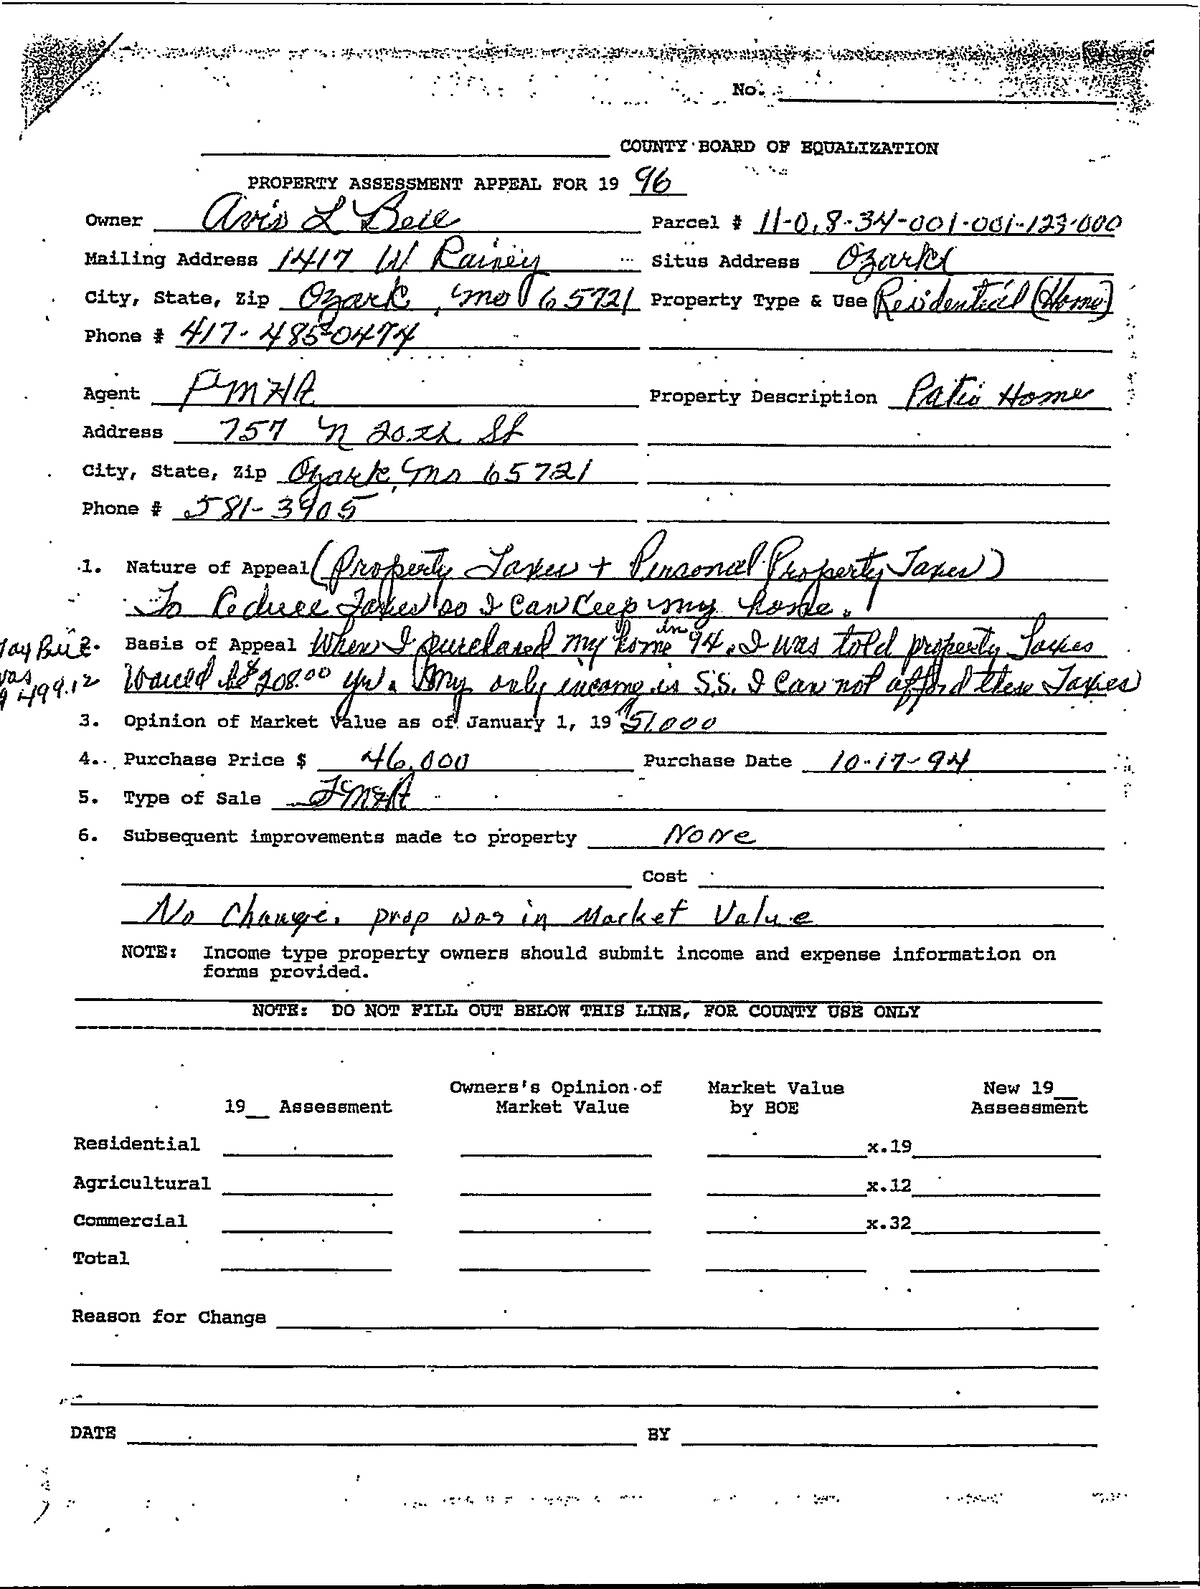 No.
COUNTY BOARD OF EQUALIZATION
PROPERTY ASSESSMENT APPEAL FOR 19 96
Owner Avis L Bell Parcel # 11-0.8-34-001-001-123-000
Mailing Address 1417 W Rainey Situs Address Ozark
City, State, Zip Ozark, Mo 65721 Property Type & Use Residential (Home)
Phone # 417-485-0474
Agent FMHA Property Description Patio Home
Address 757 N 20th St
City, State, Zip Ozark, Mo 65721
Phone # 581-3905
1. Nature of Appeal (Property Taxes + Personal Property Taxes)
To Reduce Taxes so I can keep my home.
2. Basis of Appeal When I purchased my home in 94. I was told property Taxes
would be $208.00 yr. My only income is S.S. I can not afford these Taxes
was
499.12
3. Opinion of Market Value as of January 1, 19 51,000
4. Purchase Price $ 46,000 Purchase Date 10-17-94
5. Type of Sale FMHA
6. Subsequent improvements made to property None
Cost
No Change. prop was in Market Value
NOTE: Income type property owners should submit income and expense information on
forms provided.
NOTE: DO NOT FILL OUT BELOW THIS LINE, FOR COUNTY USE ONLY
Owners's Opinion of Market Value New 19__
19__ Assessment Market Value by BOE Assessment
Residential x.19
Agricultural x.12
Commercial x.32
Total
Reason for Change
DATE BY